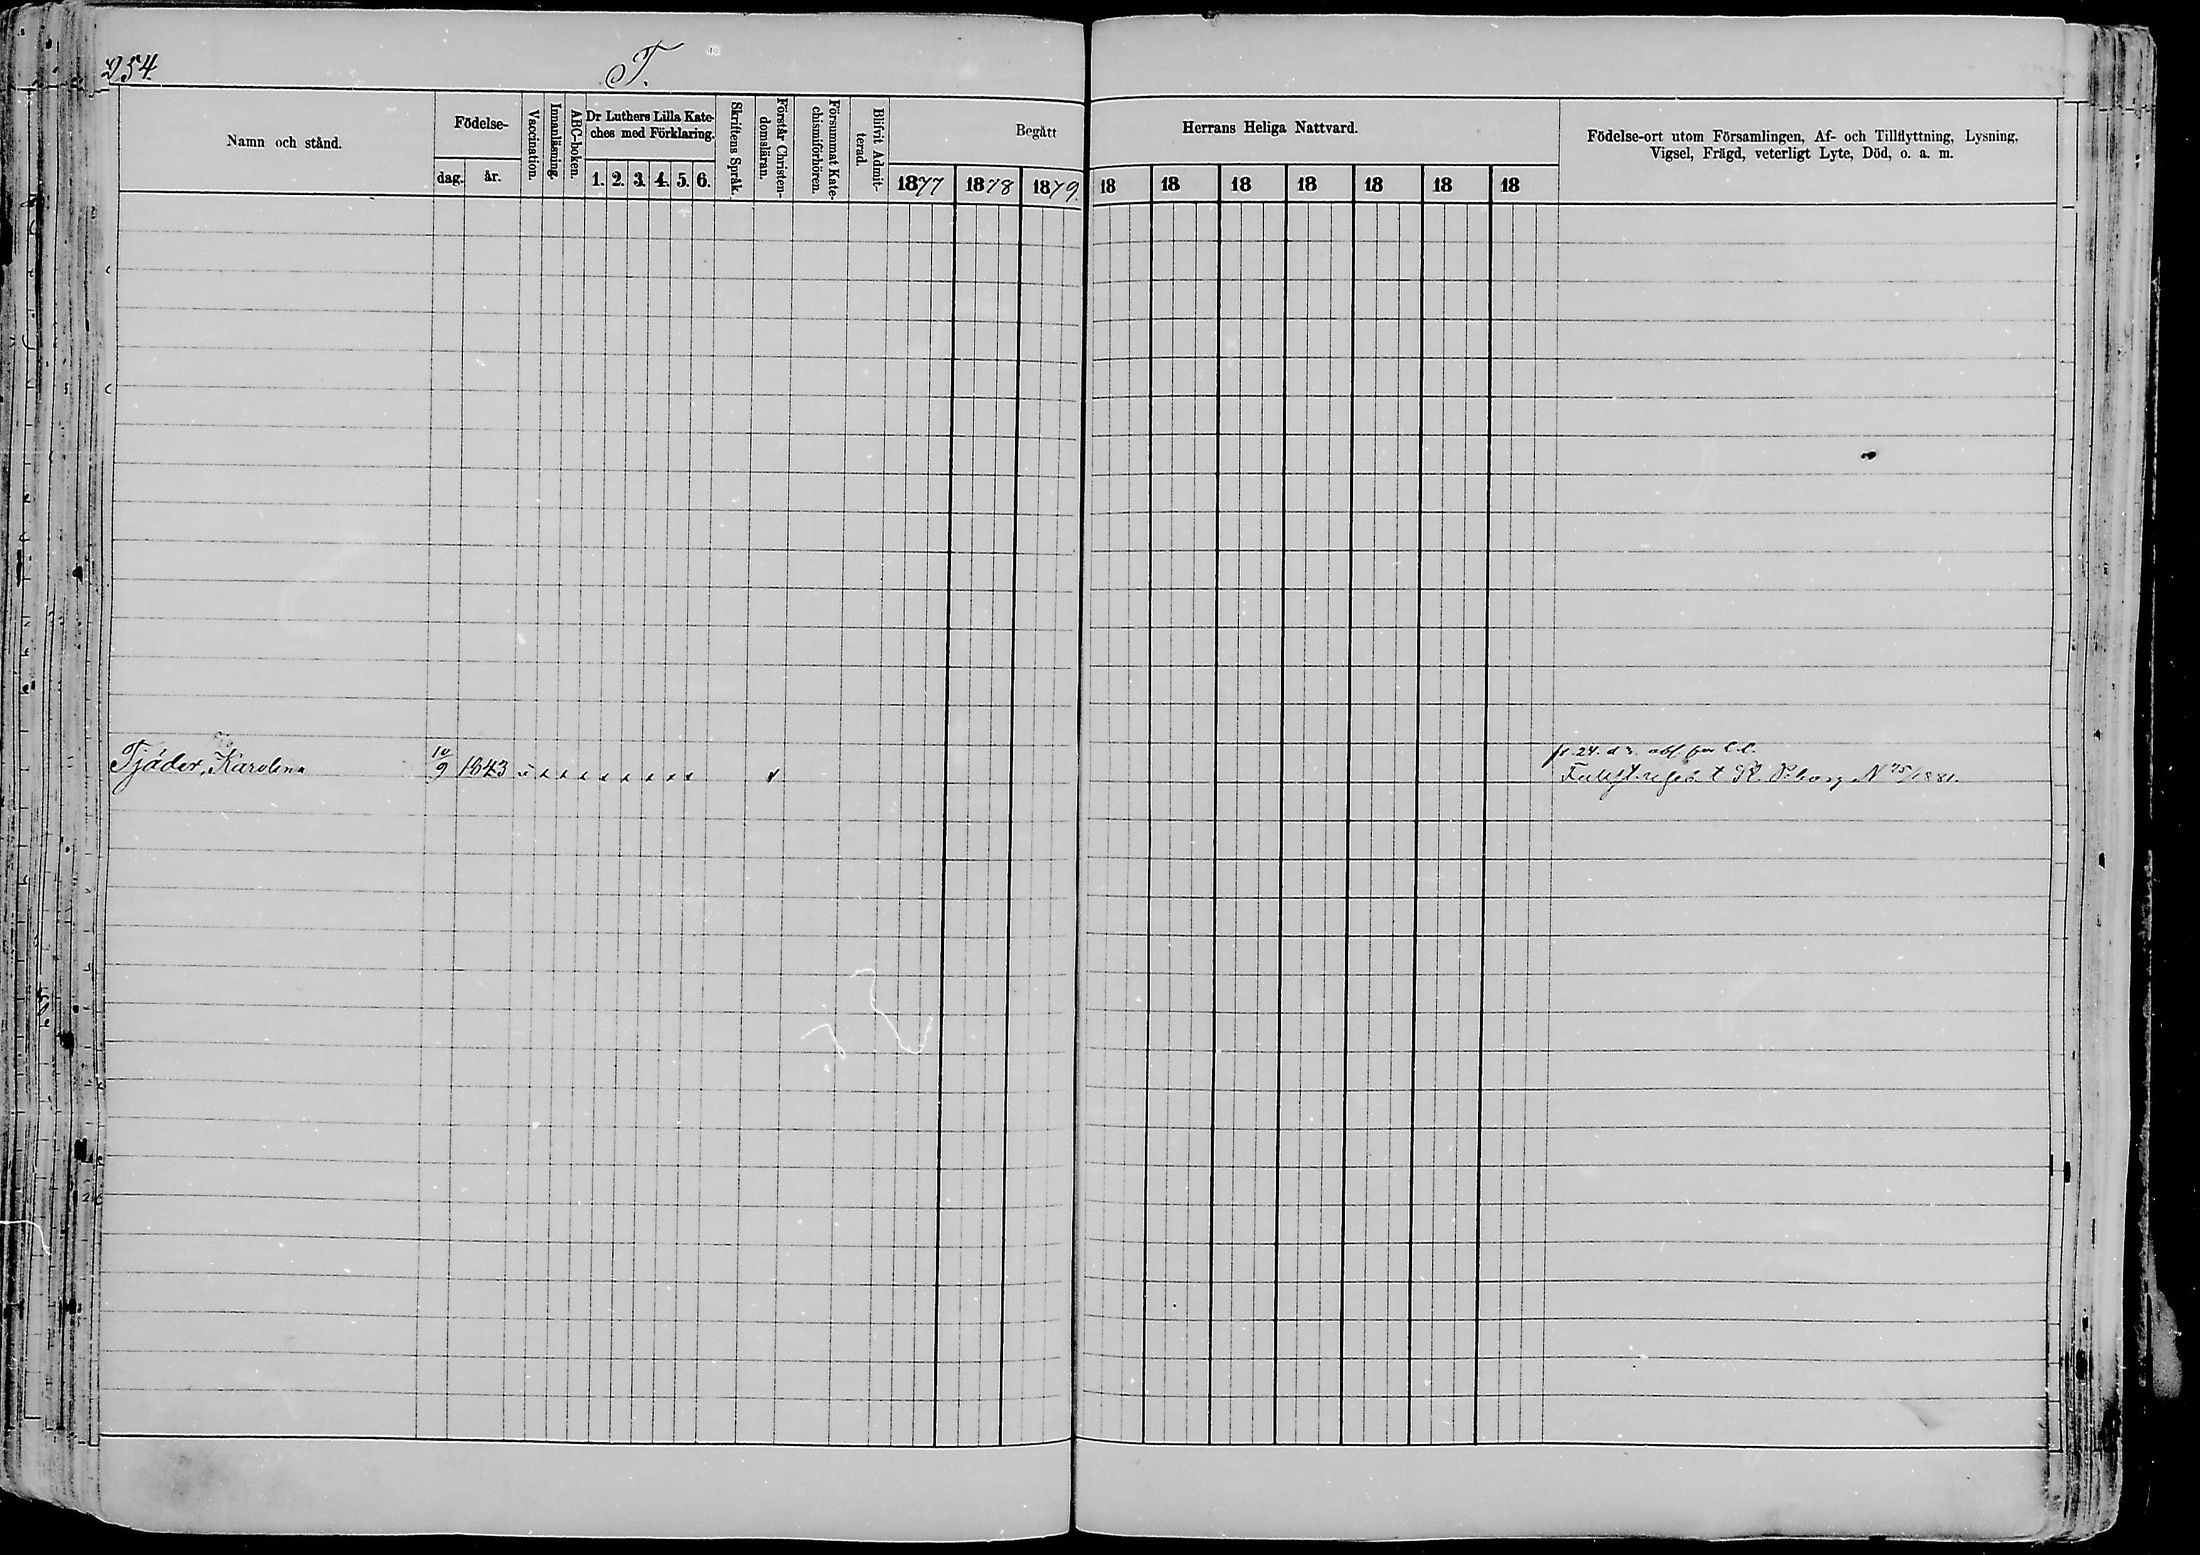 254.
T.
Namn och stånd.
Födelse-
dag.
år.
Vaccination.
Innanläsning.
ABC-boken.
Dr Luthers Lilla Kate-
ches med Förklaring.
1. 2. 3. 4. 5. 6.
Skriftens Språk.
Förstår Christen-
domsläran.
Försummat Kate-
chismiförhören.
Blifvit Admit-
terad.
Begått
1877
1878
1879.
Herrans Heliga Nattvard.
18 18 18 18 18 18 18
Födelse-ort utom Församlingen, Af- och Tillflyttning, Lysning,
Vigsel, Frägd, veterligt Lyte, Död, o. a. m.
Tjäder, Karolina 10/9 1843